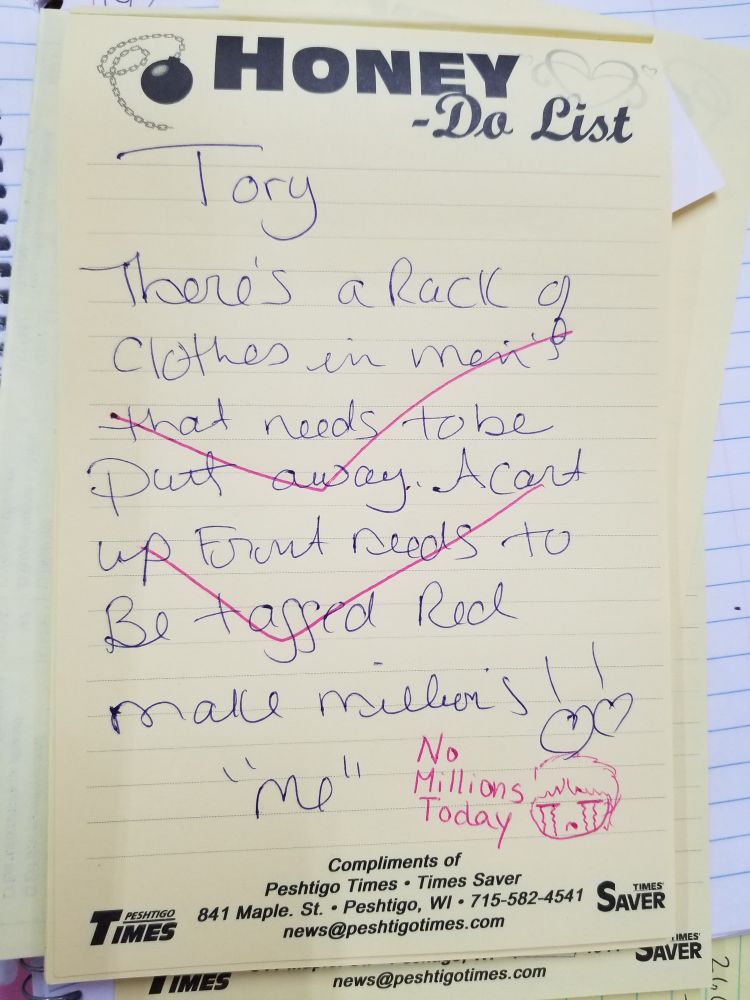 HONEY
-Do List
Tory
There's a Rack of
Clothes in men's
that needs to be
putt away. A cart
up Front needs to
Be tagged Red
make million's!!
"me"
No
Millions
Today
Compliments of
Peshtigo Times • Times Saver
841 Maple. St. • Peshtigo, WI • 715-582-4541
news@peshtigotimes.com
PESHTIGO
TIMES
TIMES'
SAVER
TIMES
news@peshtigotimes.com
IMES'
SAVER